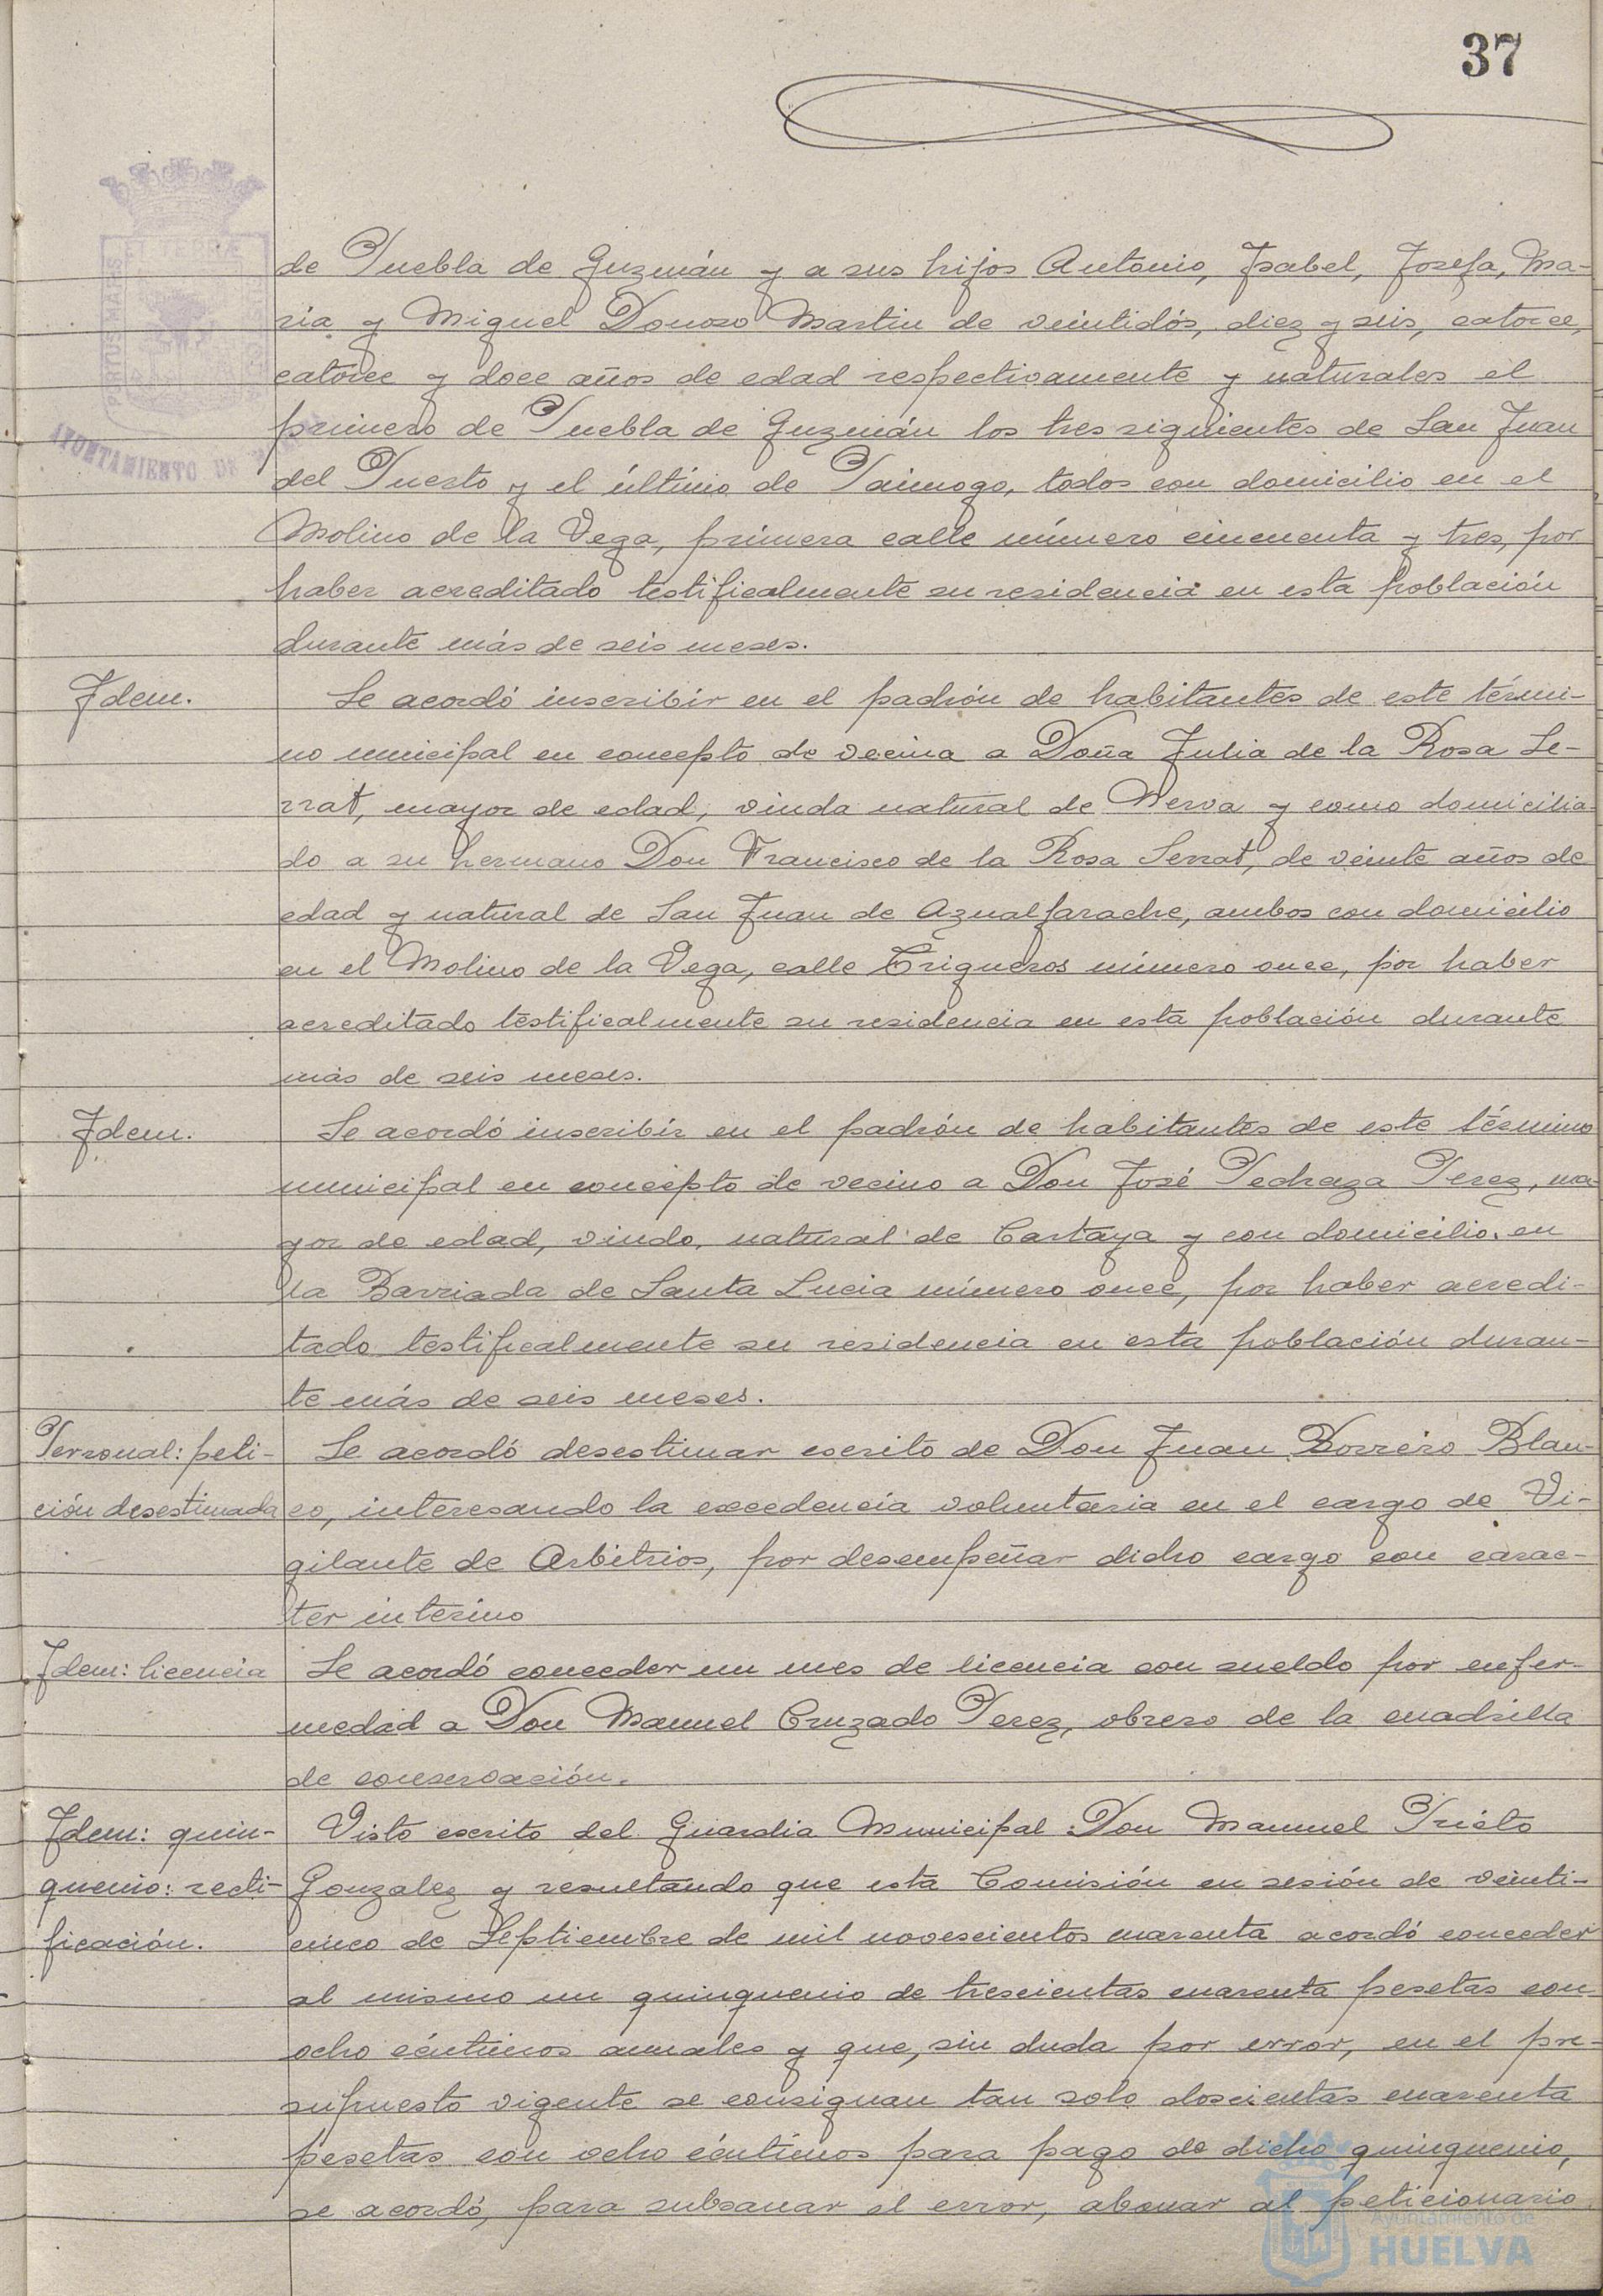 37
de Puebla de Guzmán y a sus hijos Antonio, Isabel, Josefa, Ma-
ria y Miguel Donoso Martin de veintidós, diez y seis, catorce,
catorce y doce años de edad respectivamente y naturales el
primero de Puebla de Guzmán los tres siguientes de San Juan
del Puerto y el último de Paimogo, todos con domicilio en el
Molino de la Vega, primera calle número cincuenta y tres, por
haber acreditado testificalmente su residencia en esta población
durante más de seis meses.
Idem.
Se acordó inscribir en el padrón de habitantes de este térmi-
no municipal en concepto de vecina a Doña Julia de la Rosa Se-
rrat, mayor de edad, viuda natural de Nerva y como domicilia-
do a su hermano Don Francisco de la Rosa Serrat, de veinte años de
edad y natural de San Juan de Aznalfarache, ambos con domicilio
en el Molino de la Vega, calle Trigueros número once, por haber
acreditado testificalmente su residencia en esta población durante
más de seis meses.
Idem.
Se acordó inscribir en el padrón de habitantes de este término
municipal en concepto de vecino a Don José Pedraza Perez, ma-
yor de edad, viudo, natural de Cartaya y con domicilio en
la Barriada de Santa Lucia número once, por haber acredi-
tado testificalmente su residencia en esta población duran-
te más de seis meses.
Personal: peti-
ción desestimada
Se acordó desestimar escrito de Don Juan Borrero Blan-
co, interesando la excedencia voluntaria en el cargo de Vi-
gilante de Arbitrios, por desempeñar dicho cargo con carac-
ter interino
Idem: licencia
Se acordó conceder un mes de licencia con sueldo por enfer-
medad a Don Manuel Cruzado Perez, obrero de la cuadrilla
de conservación.
Idem: quin-
quenio: recti-
ficación.
Visto escrito del Guardia Municipal Don Manuel Prieto
Gonzalez y resultando que esta Comisión en sesión de veinti-
cinco de Septiembre de mil novescientos cuarenta acordó conceder
al mismo un quinquenio de trescientas cuarenta pesetas con
ocho céntimos anuales y que, sin duda por error, en el pre-
supuesto vigente se consignan tan solo doscientas cuarenta
pesetas con ocho céntimos para pago de dicho quinquenio,
se acordó, para subsanar el error, abonar al peticionario
PORTUS MARIS ET TERRAE
AYUNTAMIENTO DE
Ayuntamiento de
HUELVA